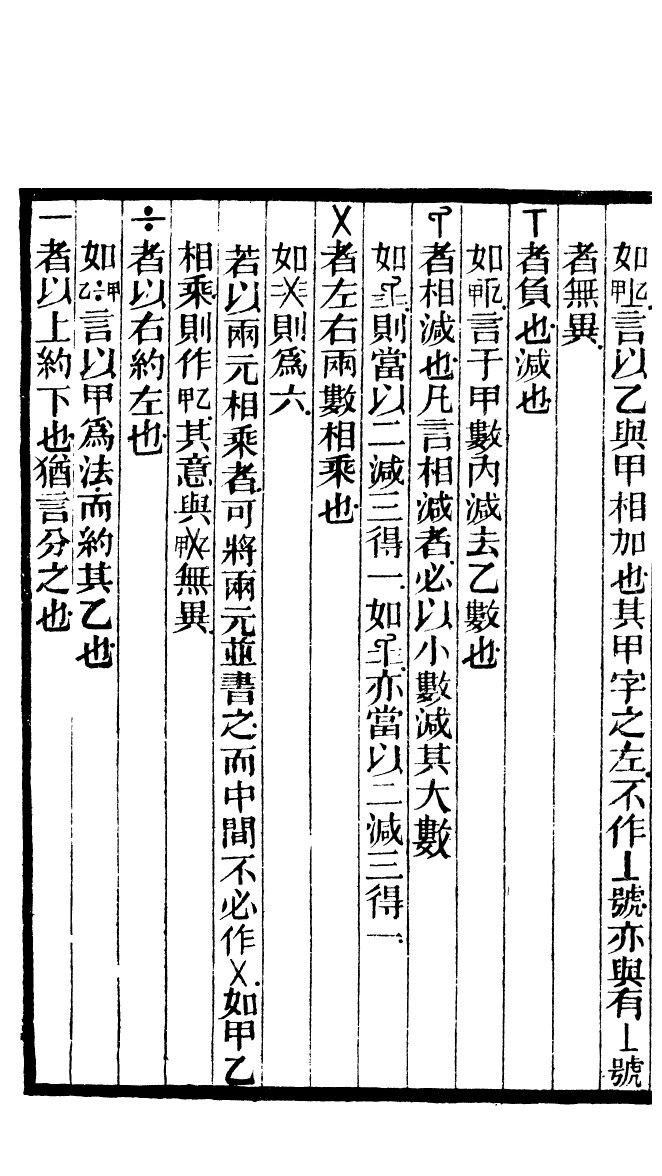 如甲⊥乙言以乙與甲相加也其甲字之左不作⊥號亦與有⊥號
者無異
⊤者負也減也
如甲⊤乙言于甲數內減去乙數也
者相減也凡言相減者必以小數減其大數
如則當以二減三得一如亦當以二減三得一
×者左右兩數相乘也
如二×三則為六
若以兩元相乘者可將兩元並書之而中間不必作×如甲乙
相乘則作甲乙其意與甲×乙無異
÷者以右約左也
如乙÷甲言以甲為法而約其乙也
一者以上約下也猶言分之也